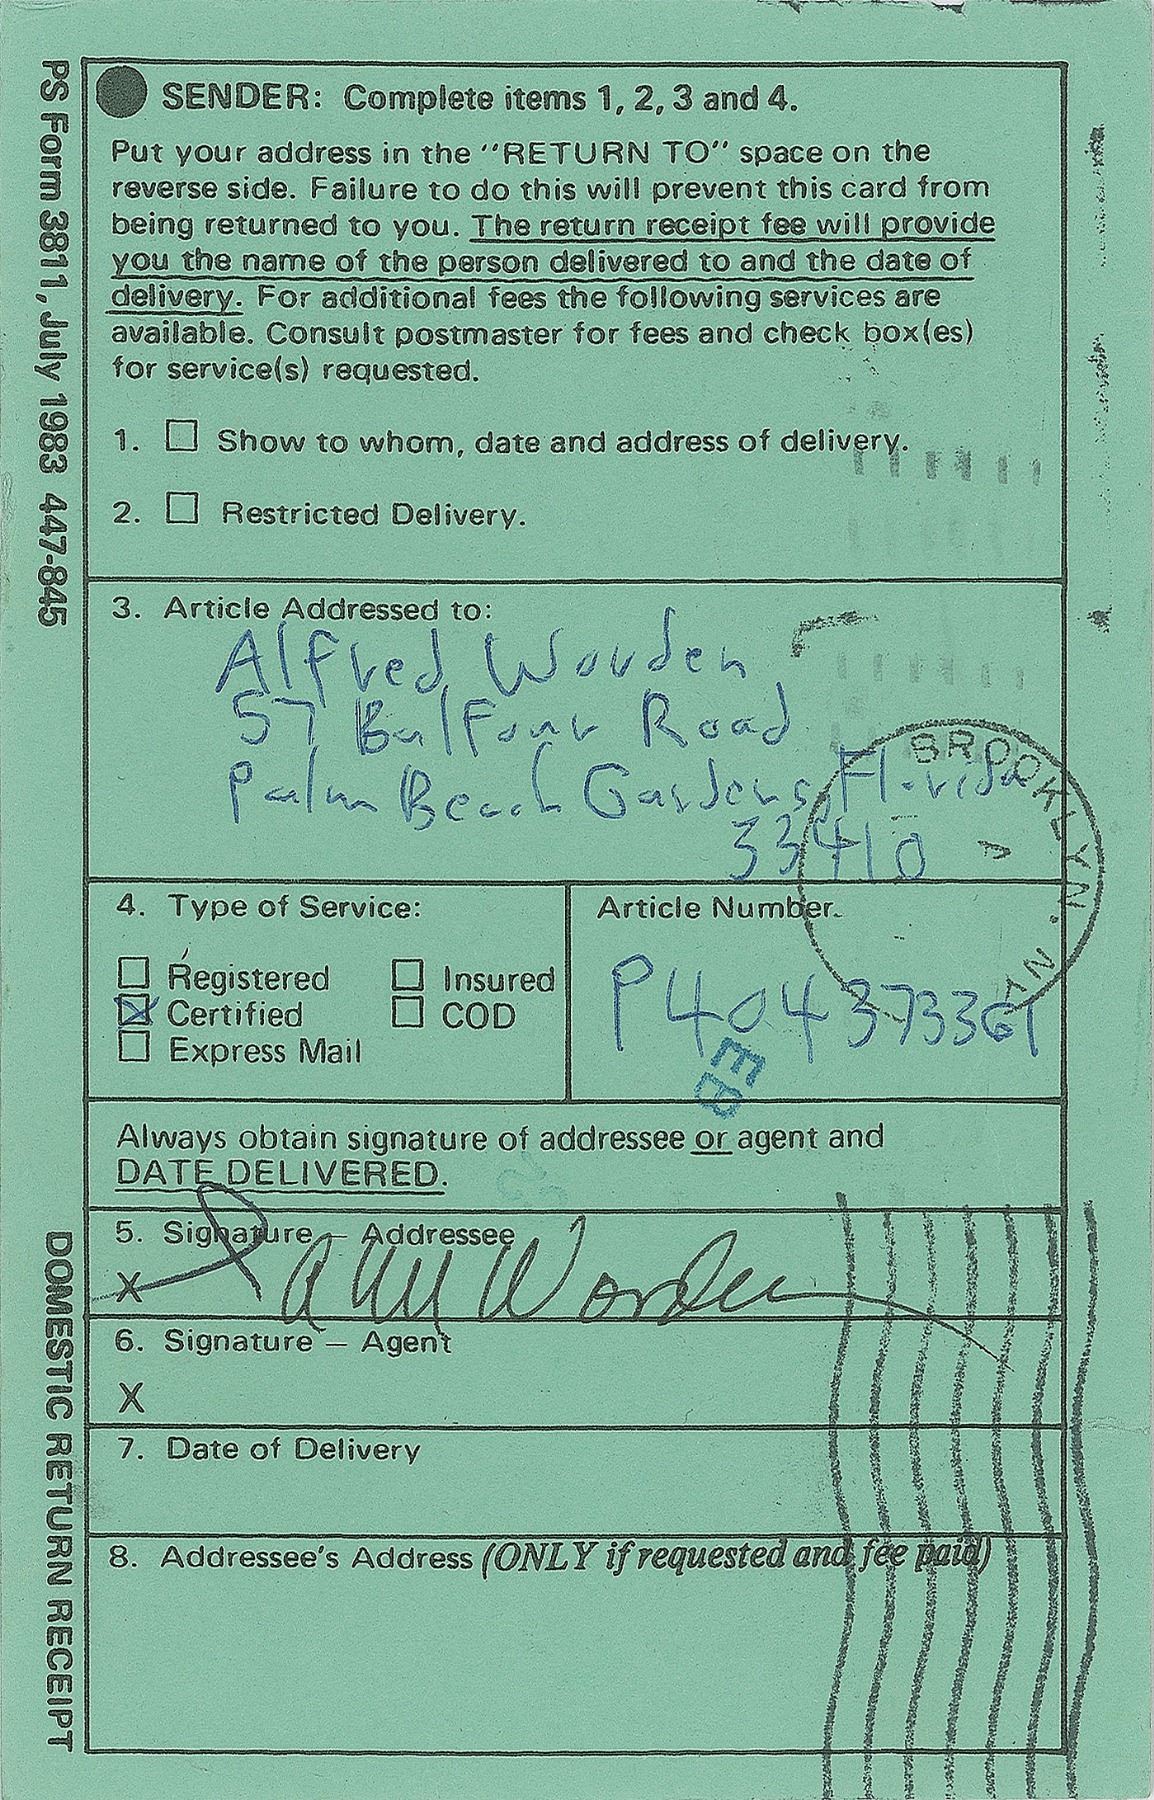 PS Form 3811, July 1983 447-845
SENDER: Complete items 1, 2, 3 and 4.
Put your address in the "RETURN TO" space on the
reverse side. Failure to do this will prevent this card from
being returned to you. The return receipt fee will provide
you the name of the person delivered to and the date of
delivery. For additional fees the following services are
available. Consult postmaster for fees and check box(es)
for service(s) requested.
1. ☐ Show to whom, date and address of delivery.
2. ☐ Restricted Delivery.
3. Article Addressed to:
Alfred Worden
57 Balfour Road
Palm Beach Gardens, Florida
33410
BROOKLYN, NY
4. Type of Service:
☐ Registered ☐ Insured
☒ Certified ☐ COD
☐ Express Mail
Article Number
P404373361
Always obtain signature of addressee or agent and
DATE DELIVERED.
5. Signature – Addressee
X Worden
6. Signature – Agent
X
7. Date of Delivery
8. Addressee's Address (ONLY if requested and fee paid)
DOMESTIC RETURN RECEIPT